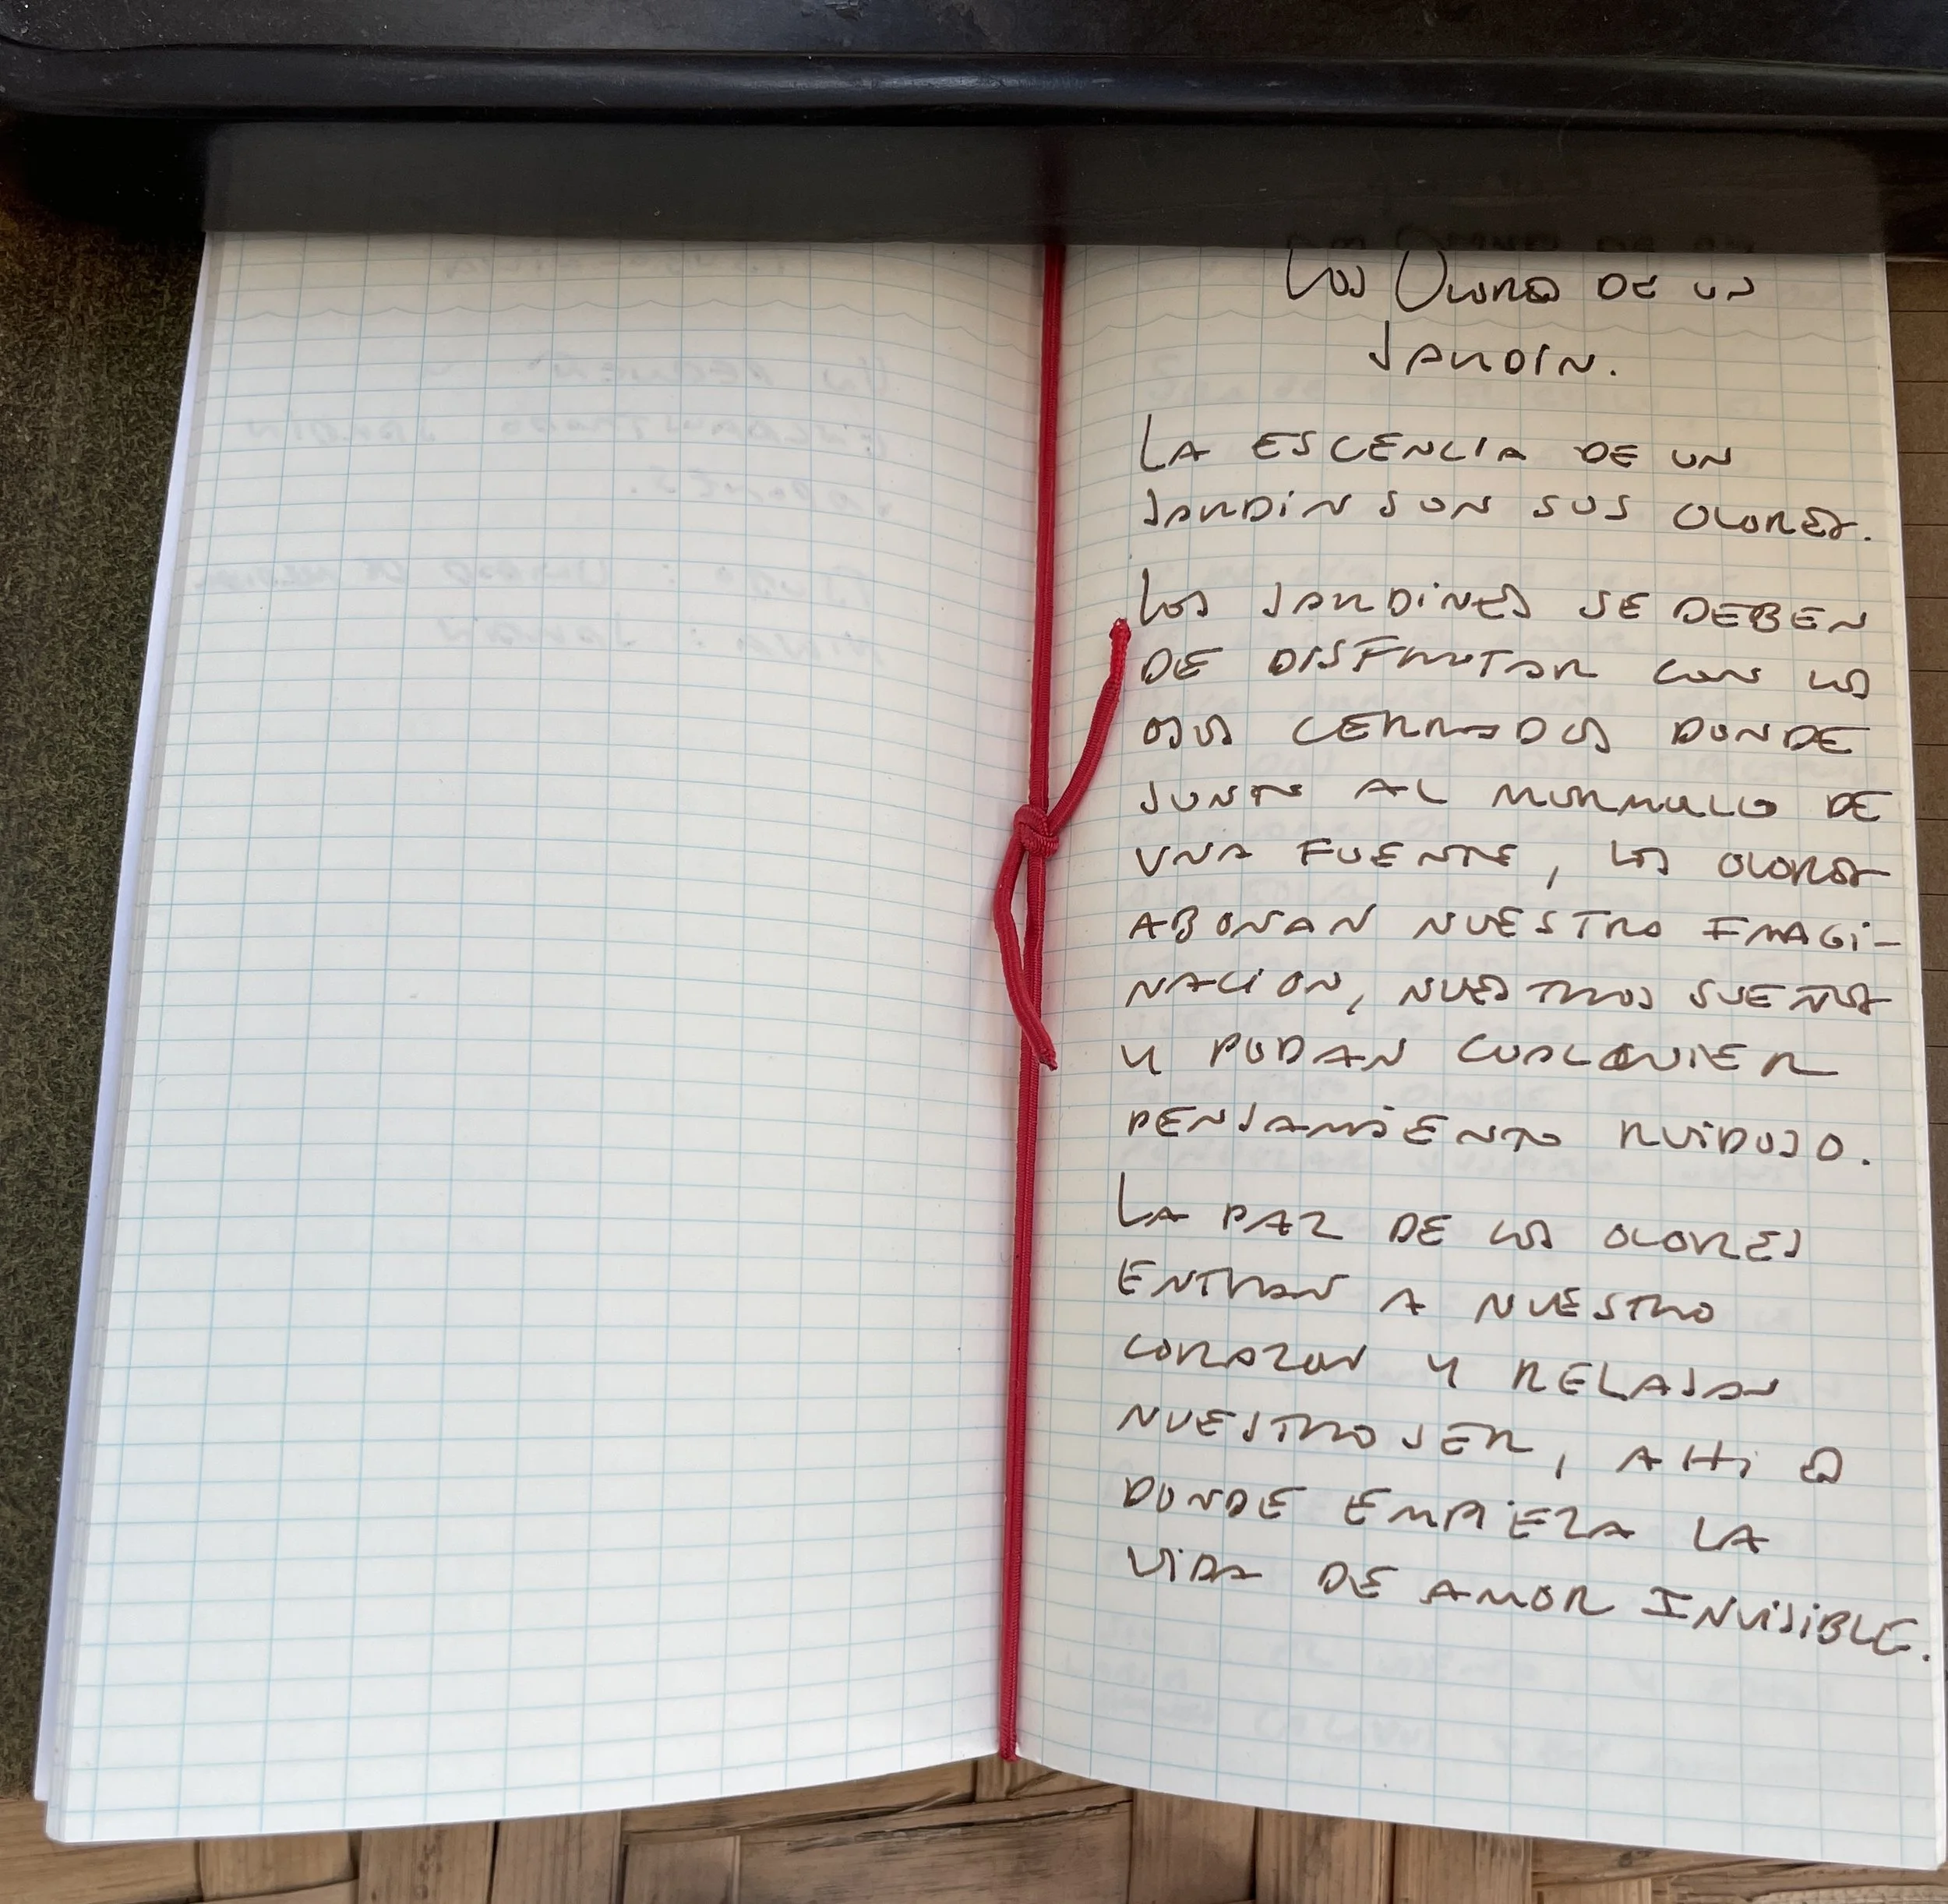 Los Olores de un
Jardin.
La escencia de un
jardin son sus olores.
Los jardines se deben
de disfrutar con los
ojos cerrados donde
junto al murmullo de
una fuente, los olores
abonan nuestro imagi-
nación, nuestros sueños
y podan cualquier
pensamiento ruidoso.
La paz de los olores
entran a nuestro
corazon y relajan
nuestro ser, ahi es
donde empieza la
vida de amor invisible.